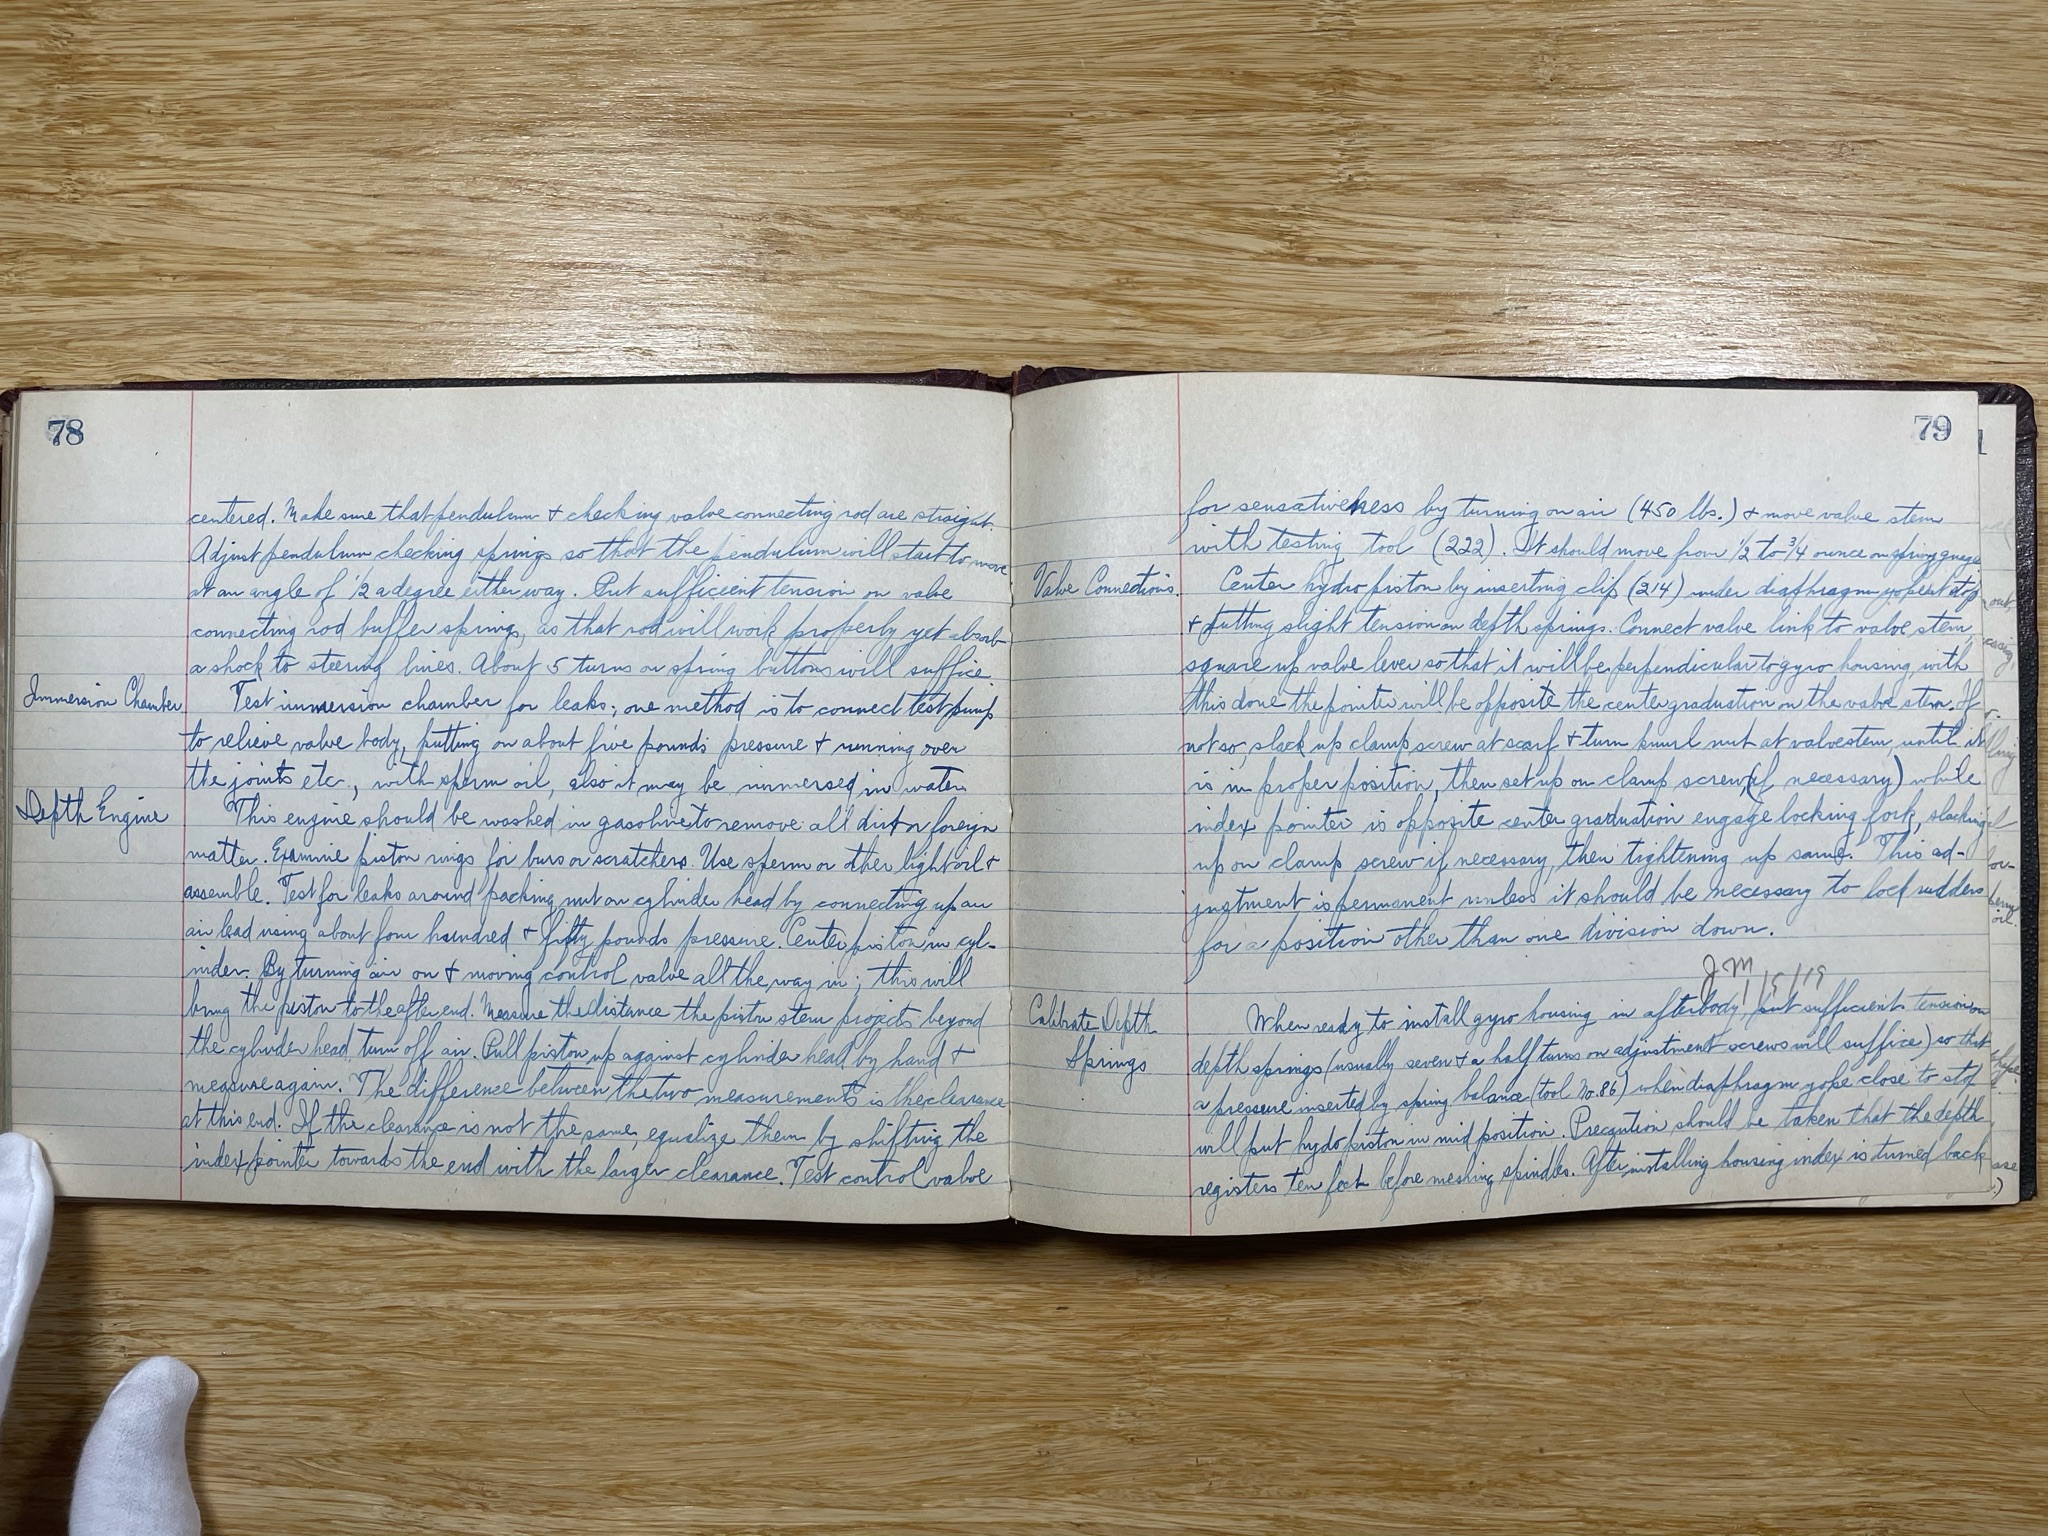 78
centered. Make sure that pendulum + checking valve connecting rod are straight.
Adjust pendulum checking springs so that the pendulum will start to move
at an angle of 1/2 a degree either way. Put sufficient tension on valve
connecting rod buffer springs, so that rod will work properly yet absorb
a shock to steering lines. About 5 turns on spring buttons will suffice.
Immersion Chamber
Test immersion chamber for leaks; one method is to connect test pump
to relieve valve body, putting on about five pounds pressure + running over
the joints etc., with sperm oil, also it may be immersed in water.
Depth Engine
This engine should be washed in gasoline to remove all dirt or foreign
matter. Examine piston rings for burs or scratchers. Use sperm or other light oil +
assemble. Test for leaks around packing nut on cylinder head by connecting up an
air lead using about four hundred + fifty pounds pressure. Center piston in cyl-
inder. By turning air on + moving control valve all the way in; this will
bring the piston to the after end. Measure the distance the piston stem projects beyond
the cylinder head, turn off air. Pull piston up against cylinder head by hand +
measure again. The difference between the two measurements is the clearance
at this end. If the clearance is not the same, equalize them by shifting the
index pointer towards the end with the larger clearance. Test control valve
79
for sensativeness by turning on air (450 lbs.) + move valve stem
with testing tool (222). It should move from 1/2 to 3/4 ounce on spring guage
Valve Connections.
Center hydro piston by inserting clip (214) under diaphragm yope at stop
+ putting slight tension on depth springs. Connect valve link to valve stem,
square up valve lever so that it will be perpendicular to gyro housing, with
this done the pointer will be opposite the center graduation on the valve stem. If
not so, slack up clamp screw at scarf + turn knurl nut at valve stem, until it
is in proper position, then set up on clamp screw, (if necessary) while
index pointer is opposite center graduation engage locking fork, slacking
up on clamp screw if necessary, then tightening up same. This ad-
justment is permanent unless it should be necessary to lock rudders
for a position other than one division down.
JM 1/5/19
Calibrate Depth
Springs
When ready to install gyro housing in afterbody, put sufficient tension on
depth springs (usually seven + a half turns on adjustment screws will suffice) so that
a pressure inserted by spring balance (tool No. 86) when diaphragm yope close to stop
will put hydo piston in mid position. Precaution should be taken that the depth
registers ten feet before meshing spindles. After installing housing index is turned back